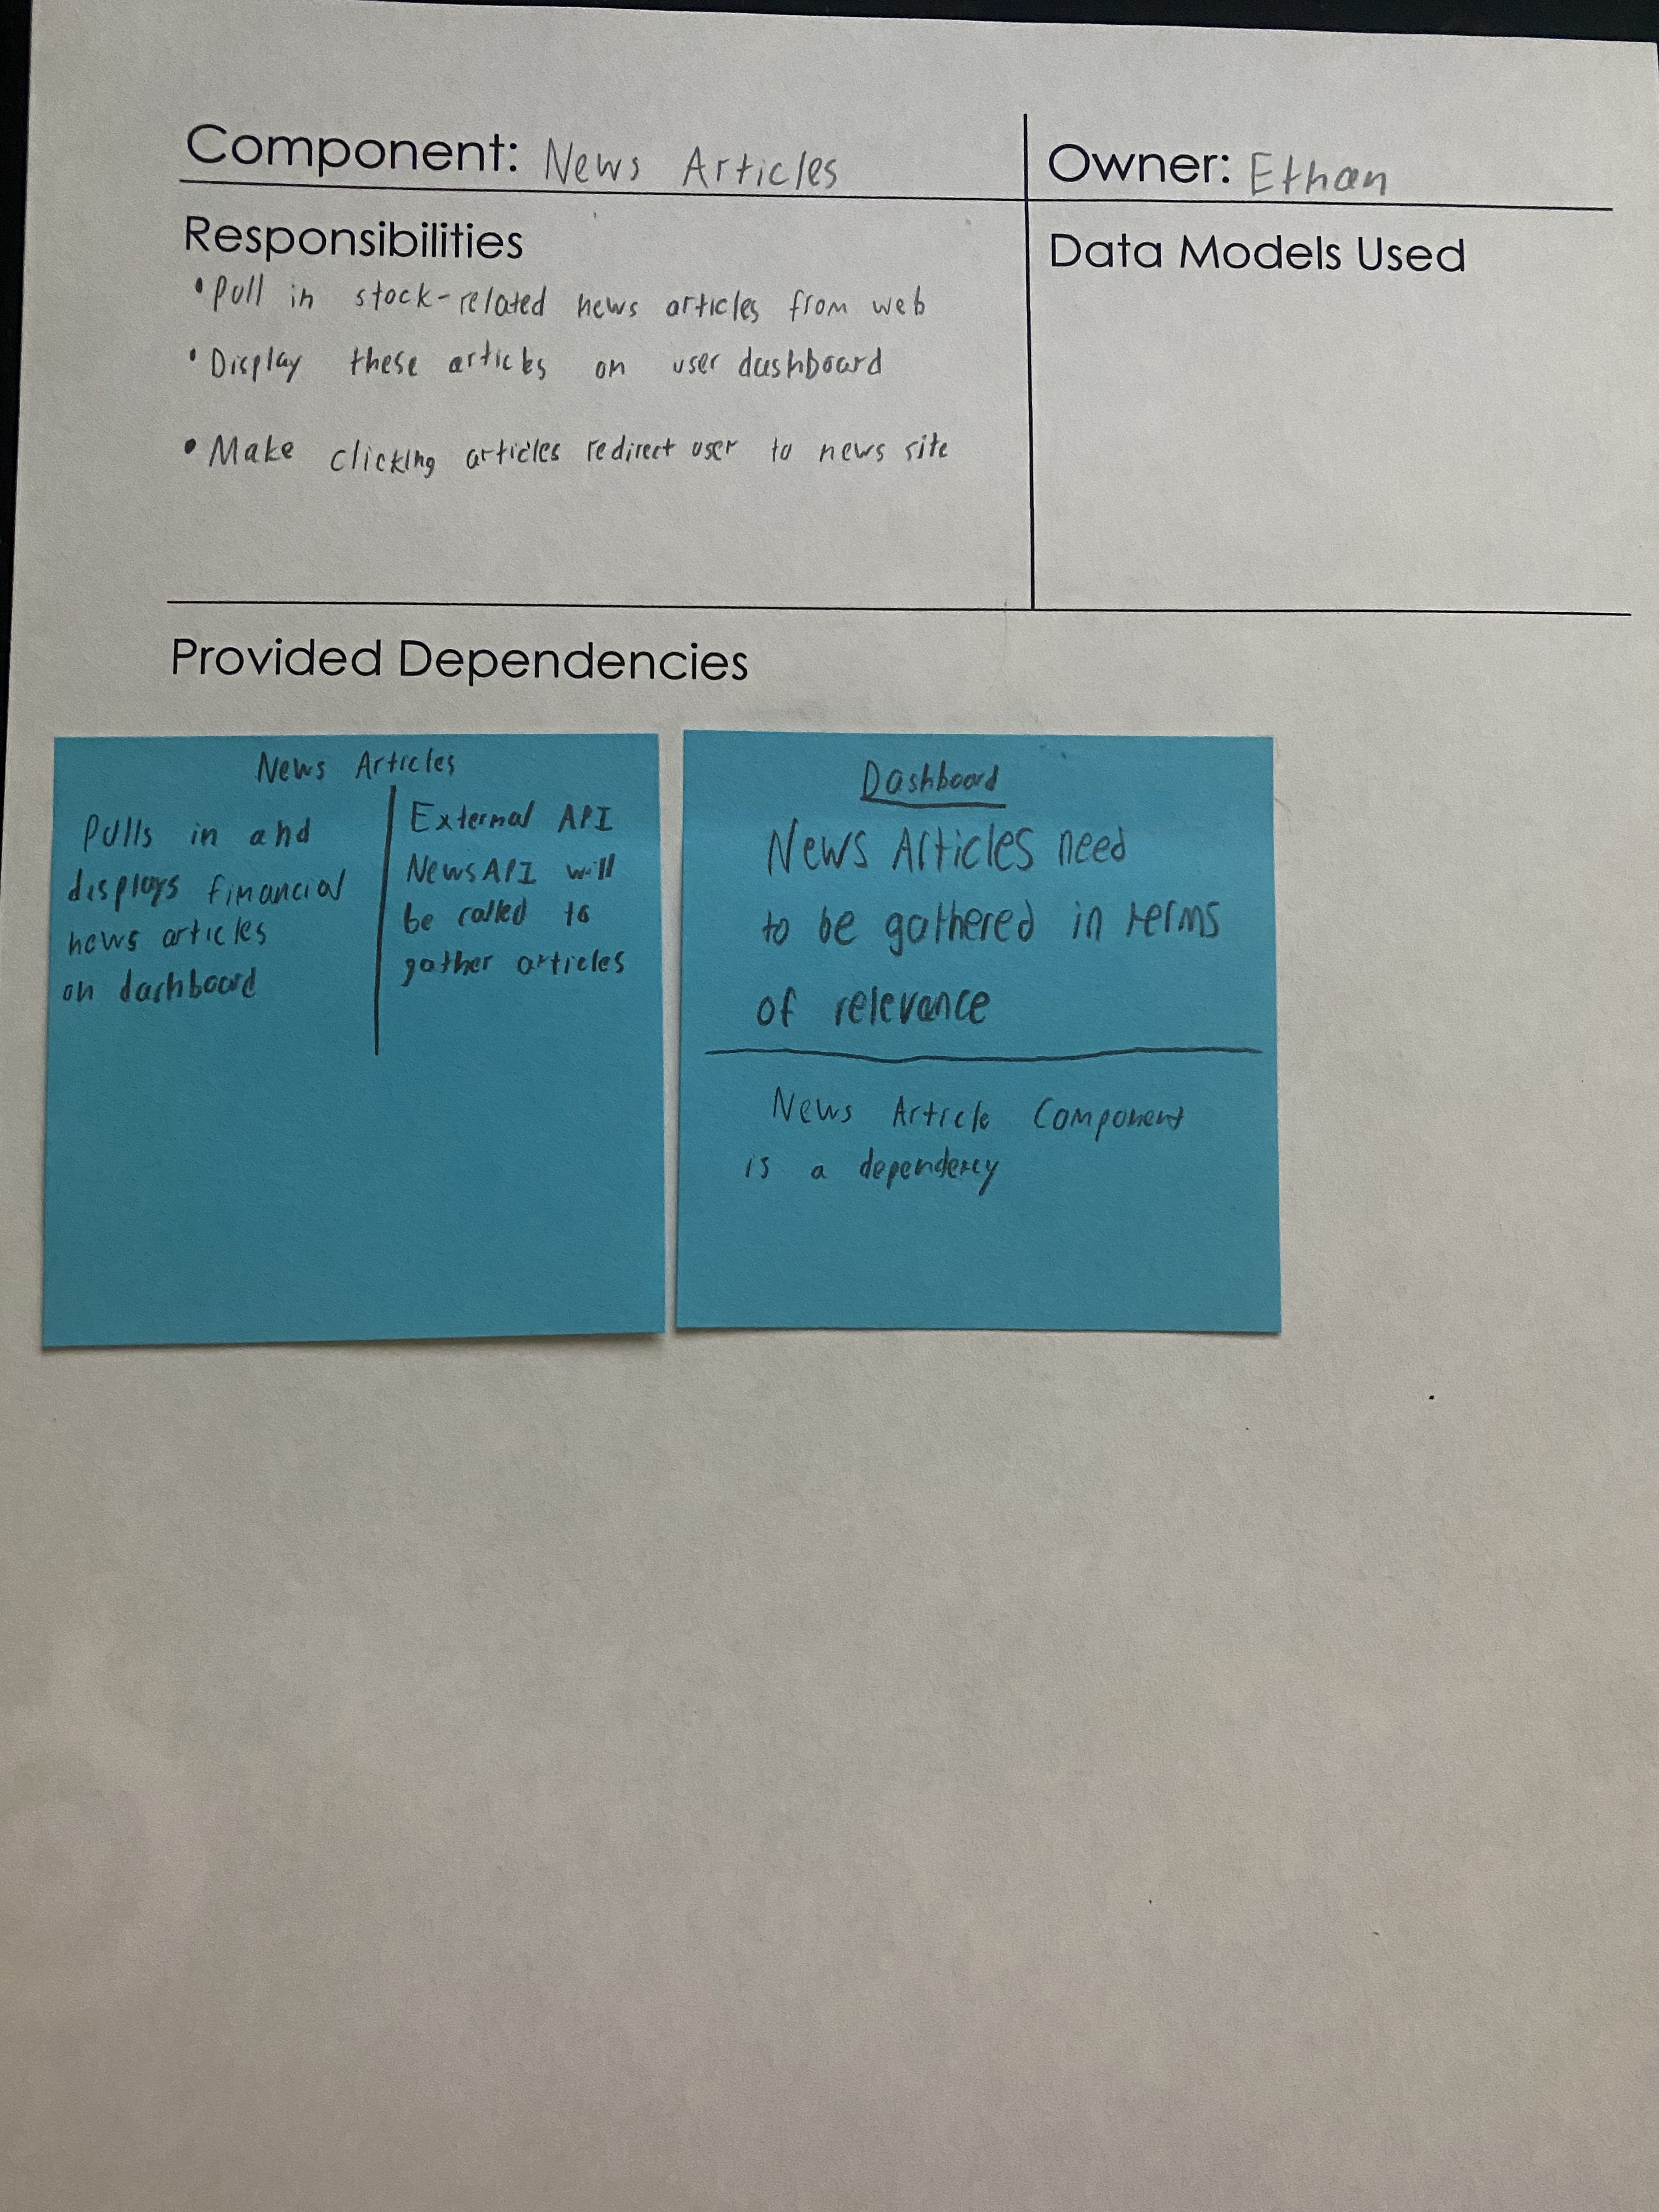 Component: News Articles
Owner: Ethan
Responsibilities
• Pull in stock-related news articles from web
• Display these articles on user dashboard
• Make clicking articles redirect user to news site
Data Models Used
Provided Dependencies
News Articles
Pulls in and
displays financial
news articles
on dashboard
External API
NewsAPI will
be called to
gather articles
Dashboard
News Articles need
to be gathered in terms
of relevance
News Article Component
is a dependency